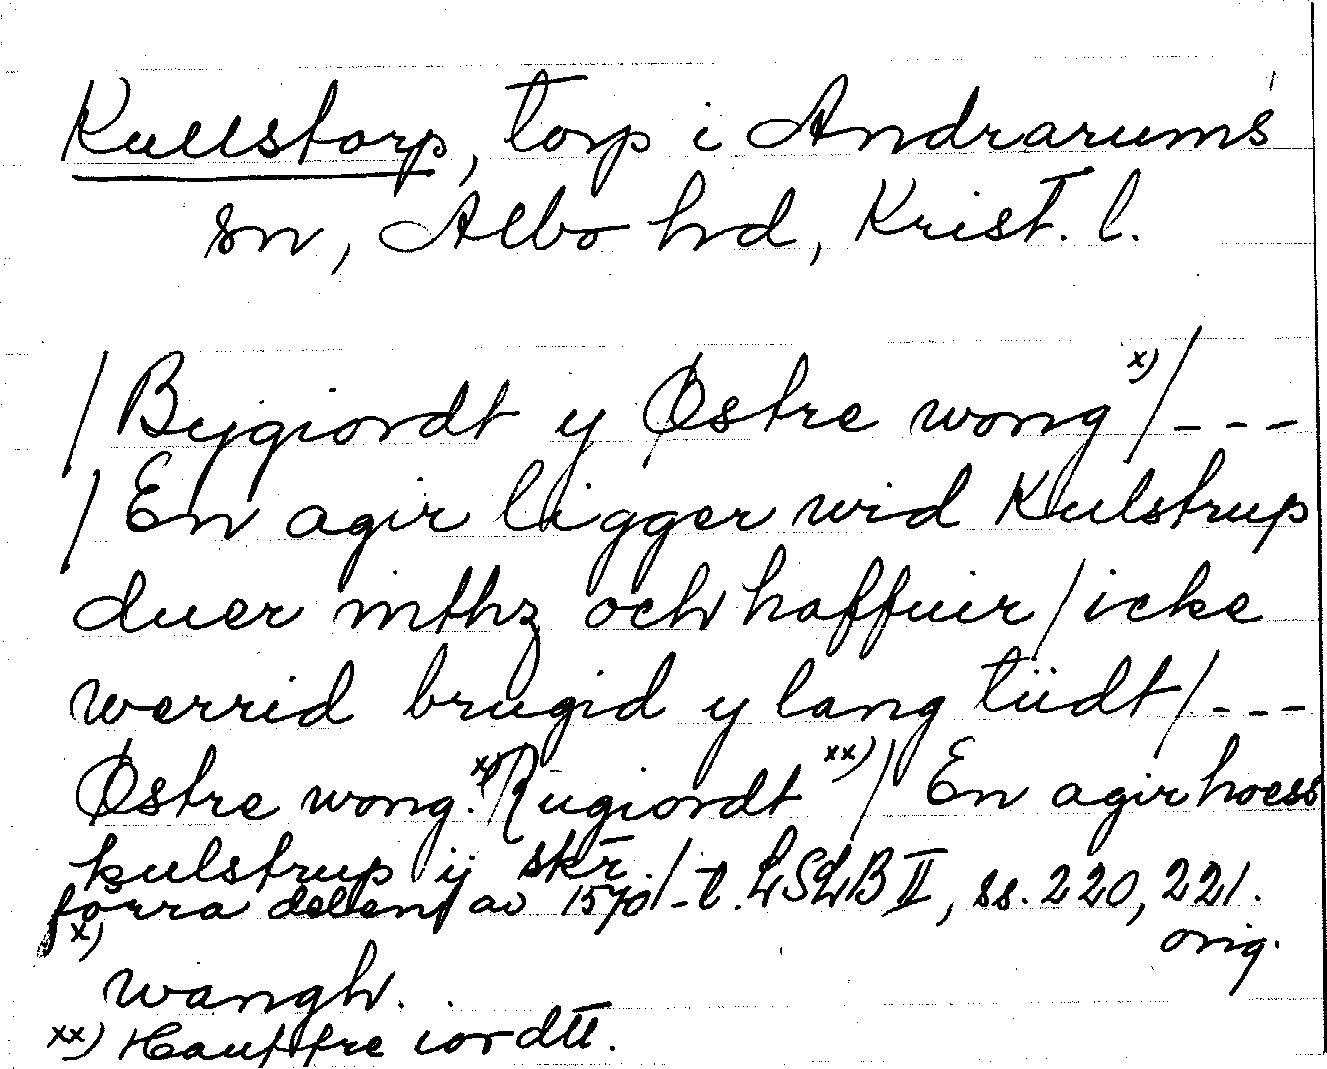 Kullstorp, torp i Andrarums
sn, Albo hd, Krist. l.
/ Bygiordt y Østre wong x) / - - -
/ En agir ligger wid Kulstrup
duer mthz och haffuir / icke
werrid brugid y lang tiidt / - - -
Østre wong. x) / Rugiordt xx) / En agir hoess
kulstrup ij skr. /
förra delen av 1570 /-t. LSLB II, ss. 220, 221.
orig.
x) wangh.
xx) Hauffre iordtt.